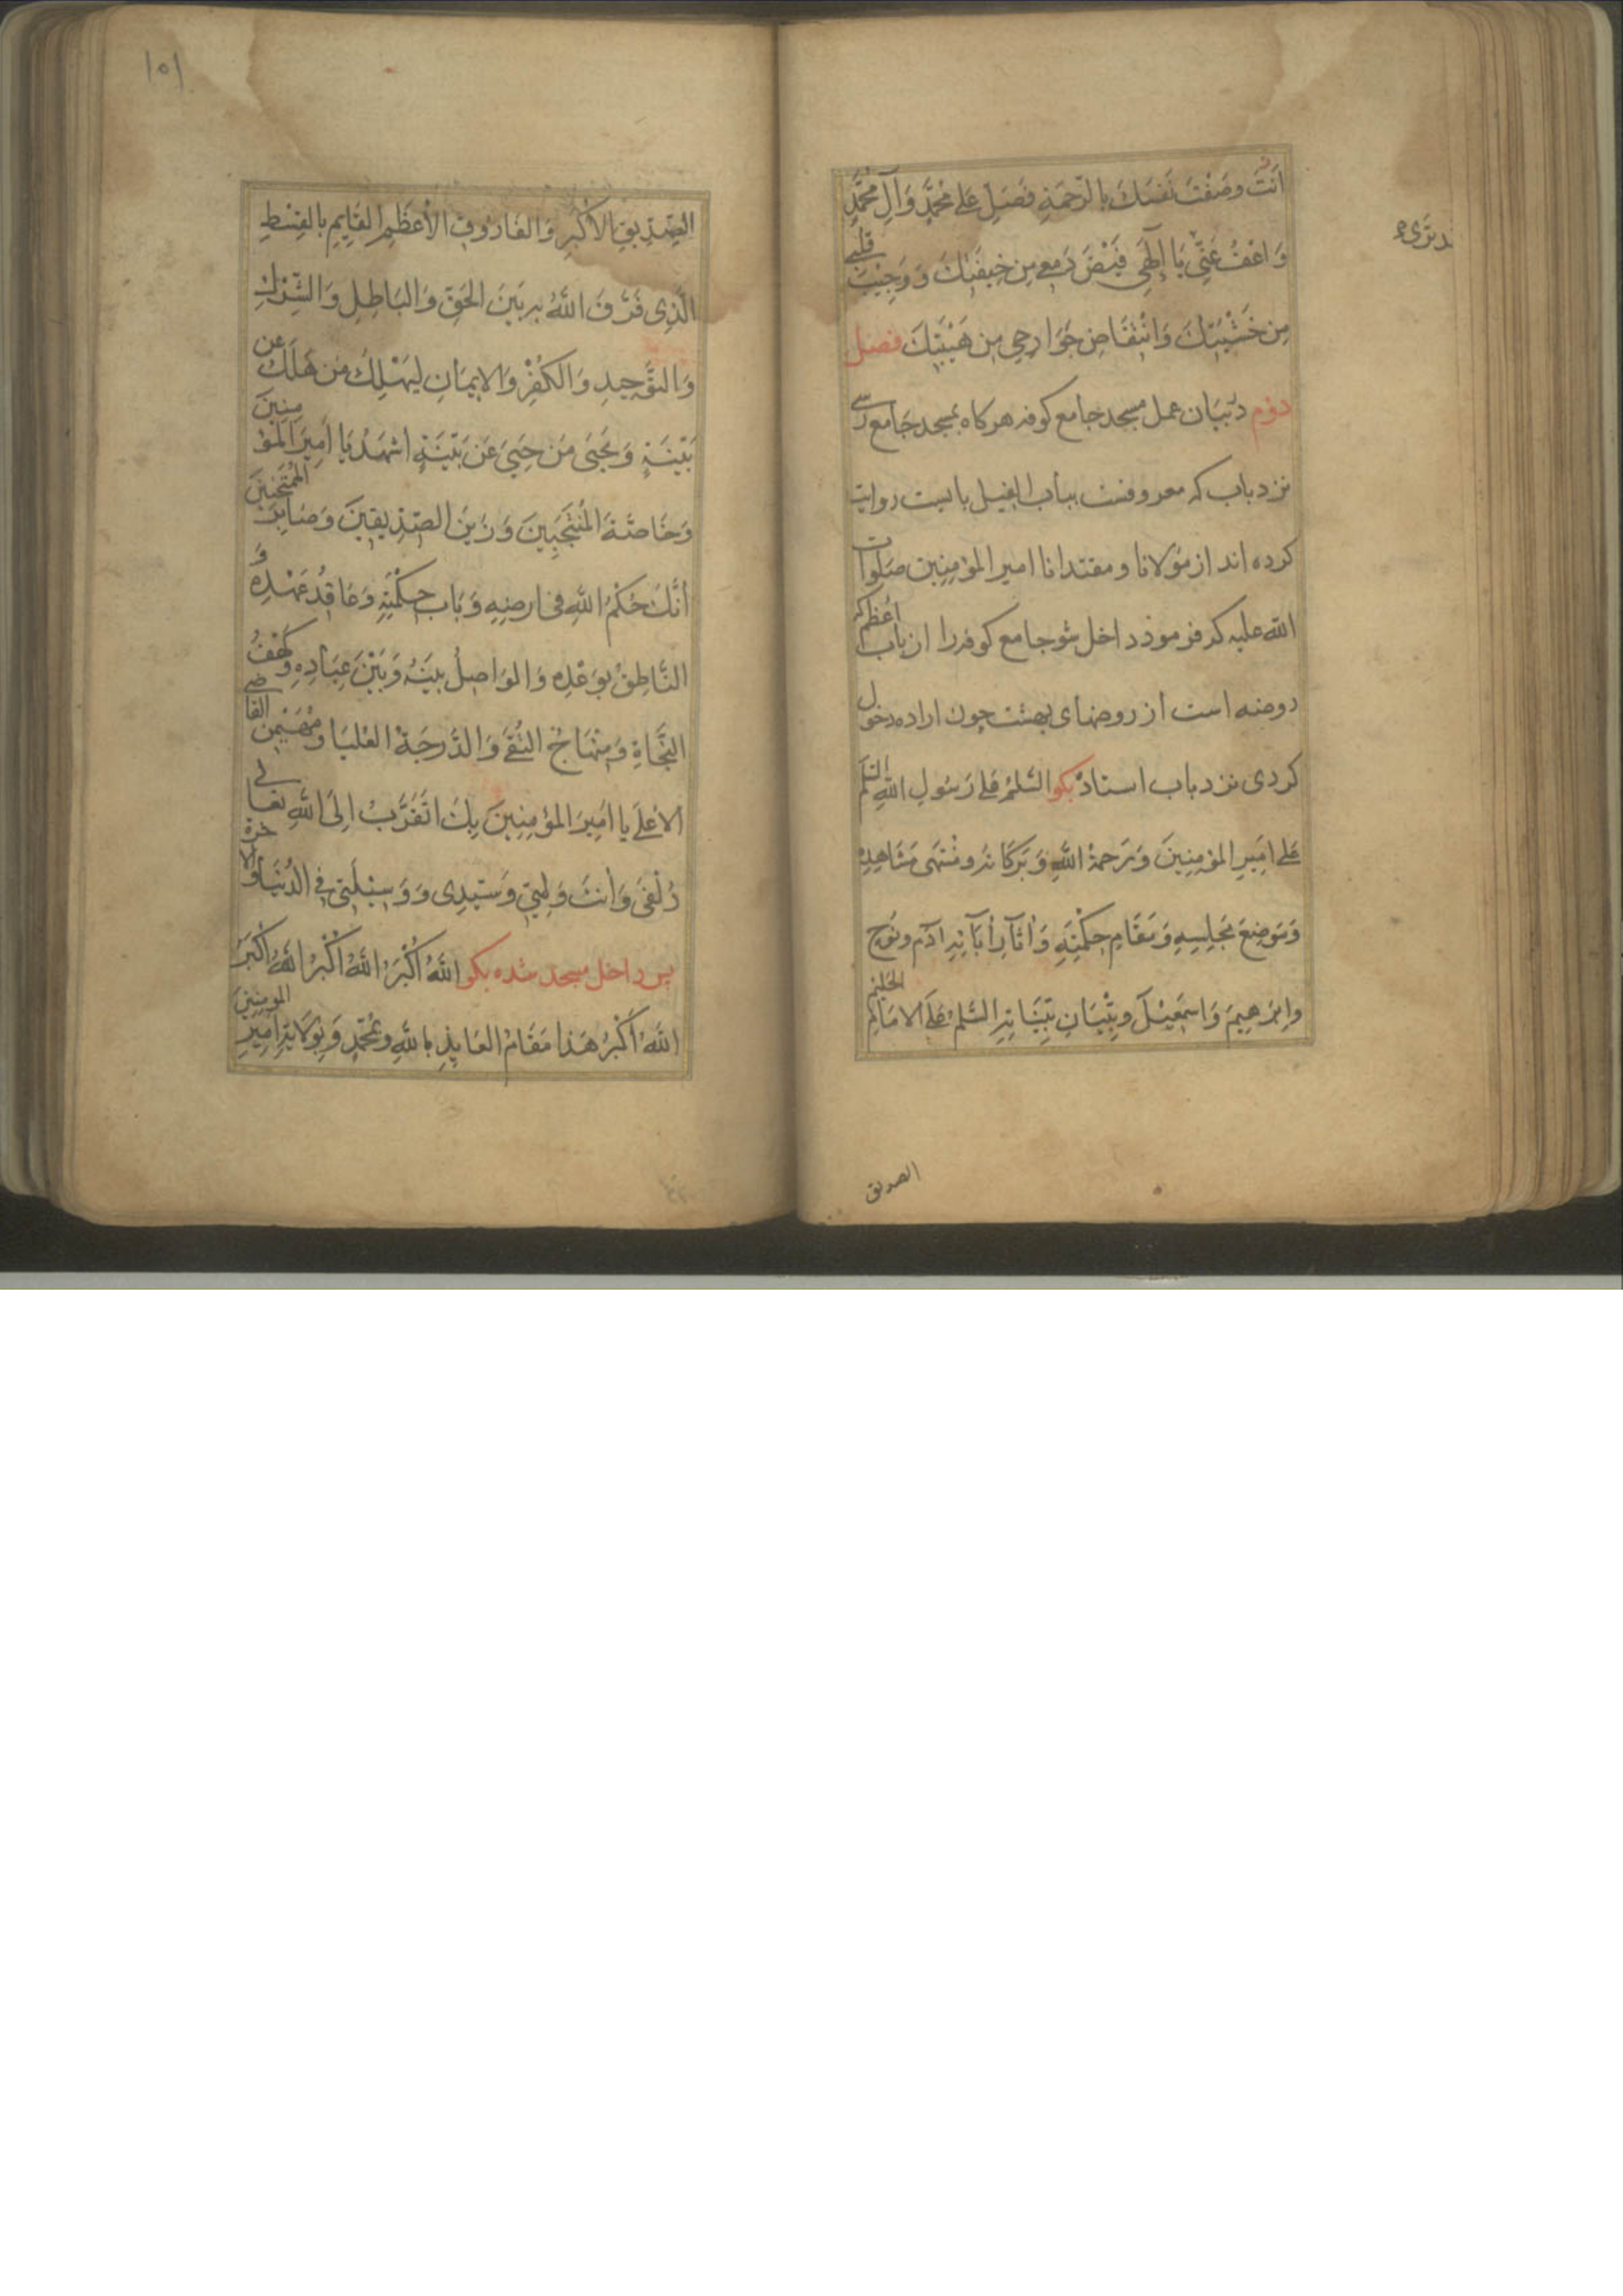 اَنْتَ وصَفْتَ نَفسَكَ بِالرَّحمَةِ فَصَلِّ عَلى مُحمَّدٍ وَآلِ مُحَمَّدٍ
وَاعْفُ عَنِّي يَا اِلٰهِي فَيْضَ دَمعي مِن خيفَتِكَ وَوَجِيْبَ قَلبي
مِن خَشْيَتِكَ وَانْتِفَاضِ جَوَارِحِي مِن هَيْبَتِكَ فصل
دوم در بیان عمل مسجد جامع کوفه هرکاه بمسجد جامع رسی
نزد باب که معروفست بباب الفیل بایست روایت
کرده اند از مولانا و مقتدانا امیر المؤمنین صلوات
الله علیه که فرمود داخل شو جامع کوفه را از باب اعظم که
روضه است از روضهای بهشت چون اراده دخول
کردی نزد باب استاد بکو السَّلمُ عَلى رَسُولِ اللهِ السَّلمُ
عَلى اَمِيرِ المؤمِنِينَ وَرَحمَةُ اللهِ وَبَرَكَاتُه وَمُنْتَهى مَشَاهِدِهِ
وَمَوضِعَ مَجْلِسِهِ وَمَقَامِ حِكْمَتِهِ وَاٰثَارِ اٰبَآئِهِ اٰدَمَ ونُوحٍ
وَاِبْرَهِيمَ وَاِسْمٰعِيْلَ وبُنْيَانِ بَيِّنَاتِهِ السَّلمُ عَلَى الاِمَامِ الحَلِيمِ
الصدیق
۱۵۱
الصِّدِيقِ الأَكْبَرِ وَالفَارُوقِ الأعْظَمِ القَايِمِ بِالقِسْطِ
الَّذِى فَرَّقَ اللهُ بِه بَيْنَ الحَقِّ وَالبَاطِلِ وَالشِّرْكِ
وَالتَّوْحِيدِ وَالكُفْرِ وَالاِيمَانِ لِيَهْلِكَ مَنْ هَلَكَ عَنْ
بَيِّنَةٍ وَيَحْيَى مَن حَيِيَ عَنْ بَيِّنَةٍ اَشْهَدُ يَا اَمِيرَ المؤمِنِينَ
وَخَاصَّةَ المُنْتَجَبِينَ وَزَينَ الصِّدِيقِينَ وَصَابِرَ المُمْتَحَنِينَ
اَنَّكَ حَكَمُ اللهِ فى ارضِهِ وَبَابُ حِكْمَتِهِ وَعَاقِدُ عَهْدِهِ وَ
النَّاطِقُ بِوَعْدِهِ وَالوَاصِلُ بَيْنَهُ وَبَيْنَ عِبَادِهِ وَكَهْفُ
النَّجَاةِ وَمِنْهَاجُ التُّقَى وَالدَّرَجَةُ العُلْيَا وَمُهَيْمِنُ القَاضي
الاَعْلَى يَا اَمِيرَ المؤمِنِينَ بِكَ اَتَقَرَّبُ اِلَى اللهِ تعالى
زُلْفَى وَاَنْتَ وَلِيِّي وَسَيِّدِى وَوَسِيْلَتِي فِي الدُنْيَا وَالاخرة
پس داخل مسجد شده بکو اللهُ اَكْبَرُ اللهُ اَكْبَرُ اللهُ اَكْبَرُ
اللهُ اَكْبَرُ هٰذَا مَقَامُ العَايِذِ بِاللهِ وبِمُحَمَّدٍ وَبِوَلَايَةِ اَمِيرِ المؤمِنِينَ